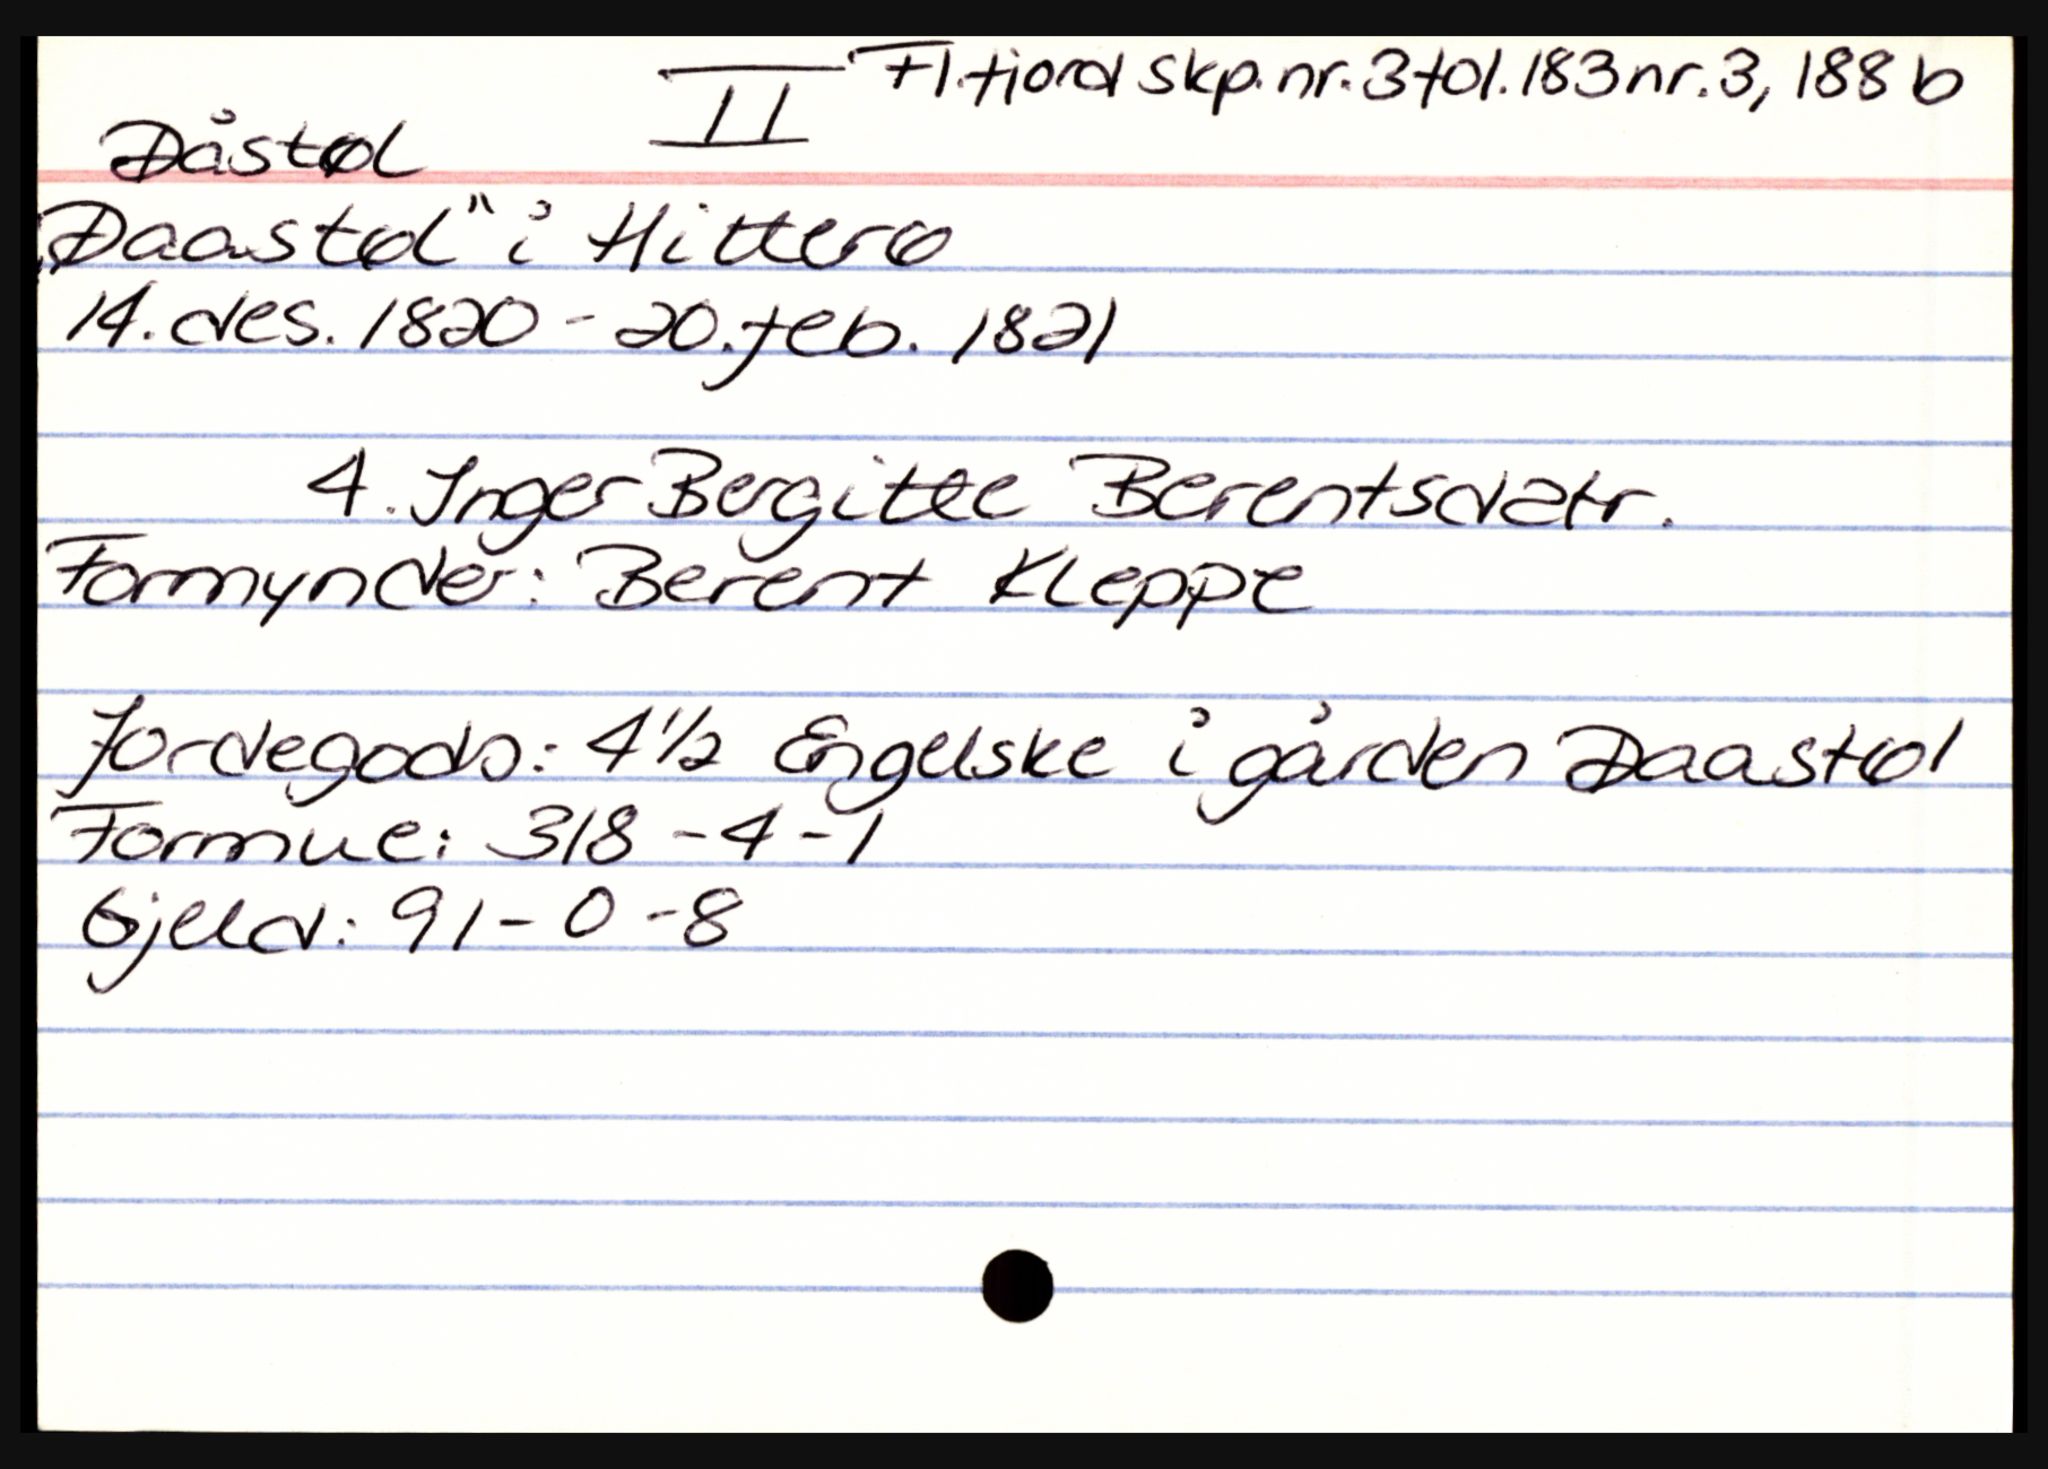 II Fl.fjord skp.nr.3 fol.183 nr.3, 188 b
Dåstøl
„Daastøl" i Hitterø
14. des. 1820 - 20. feb. 1821
4. Inger Bergitte Berentsdatr.
Formynder: Berent Kleppe
Jordegods: 4 1/2 Engelske i gården Daastøl
Formue: 318 - 4 - 1
Gjeld: 91 - 0 - 8